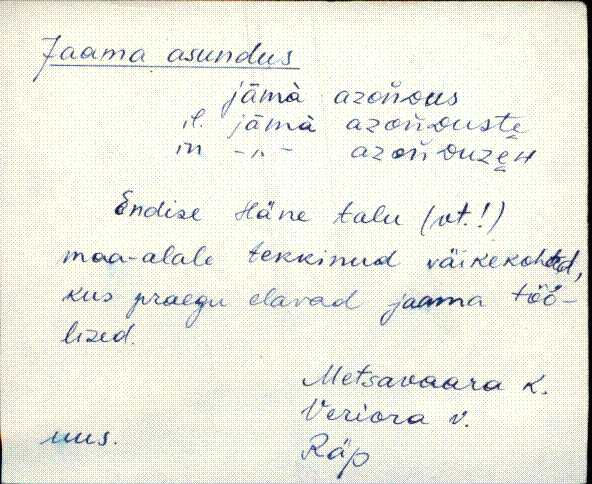 Jaama asundus
jāmà azoňdus
il. jāmà azoňduste̬
in -„- azoňduze̬H
Endise Häne talu (vt.!)
maa-alale tekkinud väikekohad,
kus praegu elavad jaama töö-
lised.
Metsavaara k.
Veriora v.
uus. Räp